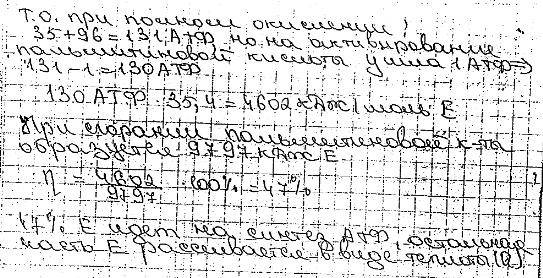 Т.о. при полном окислении:
35+96=131 АТФ, но на активирование
пальмитиновой кислоты ушла 1 АТФ ⇒
131-1=130 АТФ
130 АТФ · 35,4 = 4602 кДж/моль E
При сгорании пальмитиновой к-ты
образуется 9797 кДж E
η = 4602/9797 · 100% = 47%
47% E идет на синтез АТФ, остальная
часть E рассеивается в виде теплоты (Q).